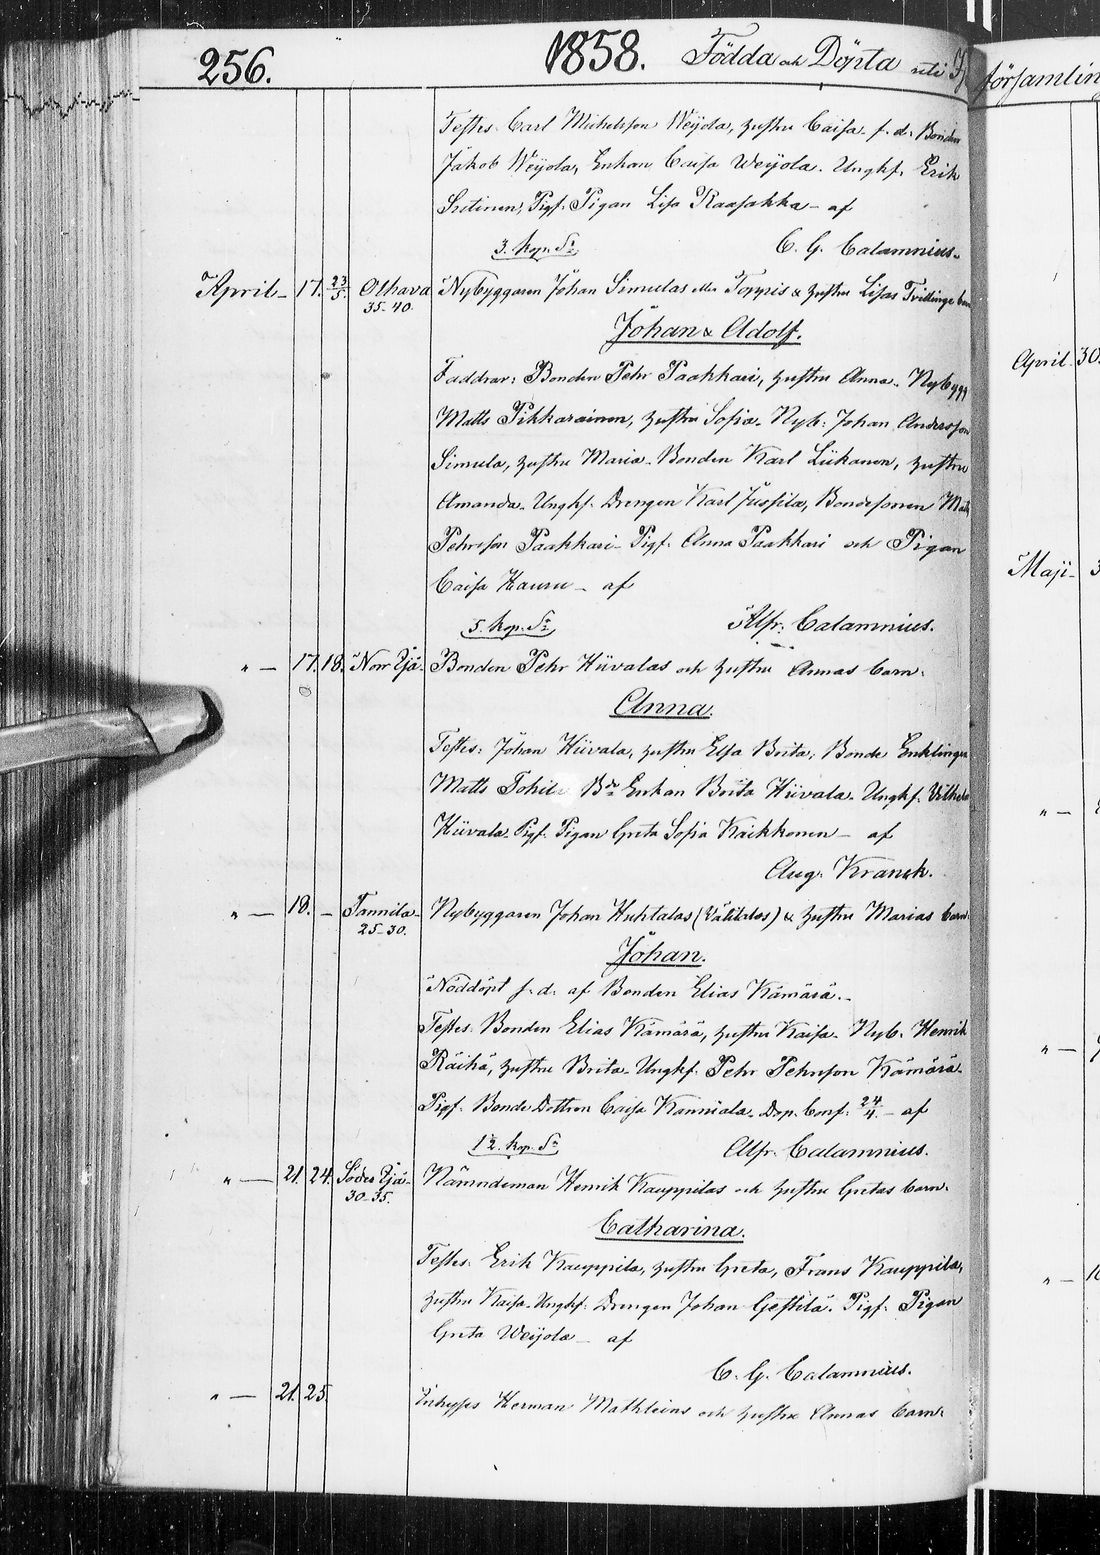 256. 1858. Födda och Döpta uti
Testes: Carl Michelsson Weijola, hustru Caisa f. d. Bonden
Jakob Weijola, Enkan Caisa Weijola. Ungk. Erik
Pigf. Pigan Lisa Raasakka – af
3. kop. Sr C. G. Calamnius.
April – 17. 23/5. Olhava Nybyggaren Johan Simulas eller Toppis & hustru Lisas Tvillinge barn
35-40.
Johan & Adolf.
Faddrar: Bonden Pehr Paakkari, hustru Anna. Nybygg
Matts Pikkarainen, hustru Sofia. Nyb. Johan Andersson
Simula, hustru Maria. Bonden Karl Liikanen, hustru
Amanda. Ungk. Drengen Karl Jussila, Bondesonen
Pehrsson Paakkari. Pigf. Anna Paakkari och Pigan
Caisa Hauru – af
5. kop. Sr Alfr. Calamnius.
" – 17. 18. Norr Ijå. Bonden Pehr Hiivalas och hustru Annas barn.
Anna.
Testes: Johan Hiivala, hustru Elsa Brita, Bonde Enklingen
Matts Tohila Bde Enkan Brita Hiivala. Ungk. Vilhelm
Hiivala. Pigf. Pigan Greta Sofia Kaikkonen – af
Aug. Kranck.
" – 18. – Tannila Nybyggaren Johan Huhtalas (Välitalos) & hustru Marias barn
25-30.
Johan.
Nöddöpt f. d. af Bonden Elias Kämärä.
Testes: Bonden Elias Kämärä, hustru Kaisa. Nyb. Henrik
Räihä, hustru Brita. Ungk. Pehr Pehrsson Kämärä.
Pigf. Bonde Dottren Caisa Kanniala. Dop. Conf. 24/4. – af
12. kop. Sr Alfr. Calamnius.
" – 21. 24. Söder Ijå Nämndeman Henrik Kauppilas och hustru Gretas barn.
30-35.
Catharina.
Testes: Erik Kauppila, hustru Greta, Frans Kauppila,
hustru Kaisa. Ungk. Drengen Johan Gestilä. Pigf. Pigan
Greta Weijola – af
C. G. Calamnius.
" – 21. 25. Inhyses Herman Mathleins och hustru Annas barn.
församlin
April 30.
Maji –
" –
" –
" –